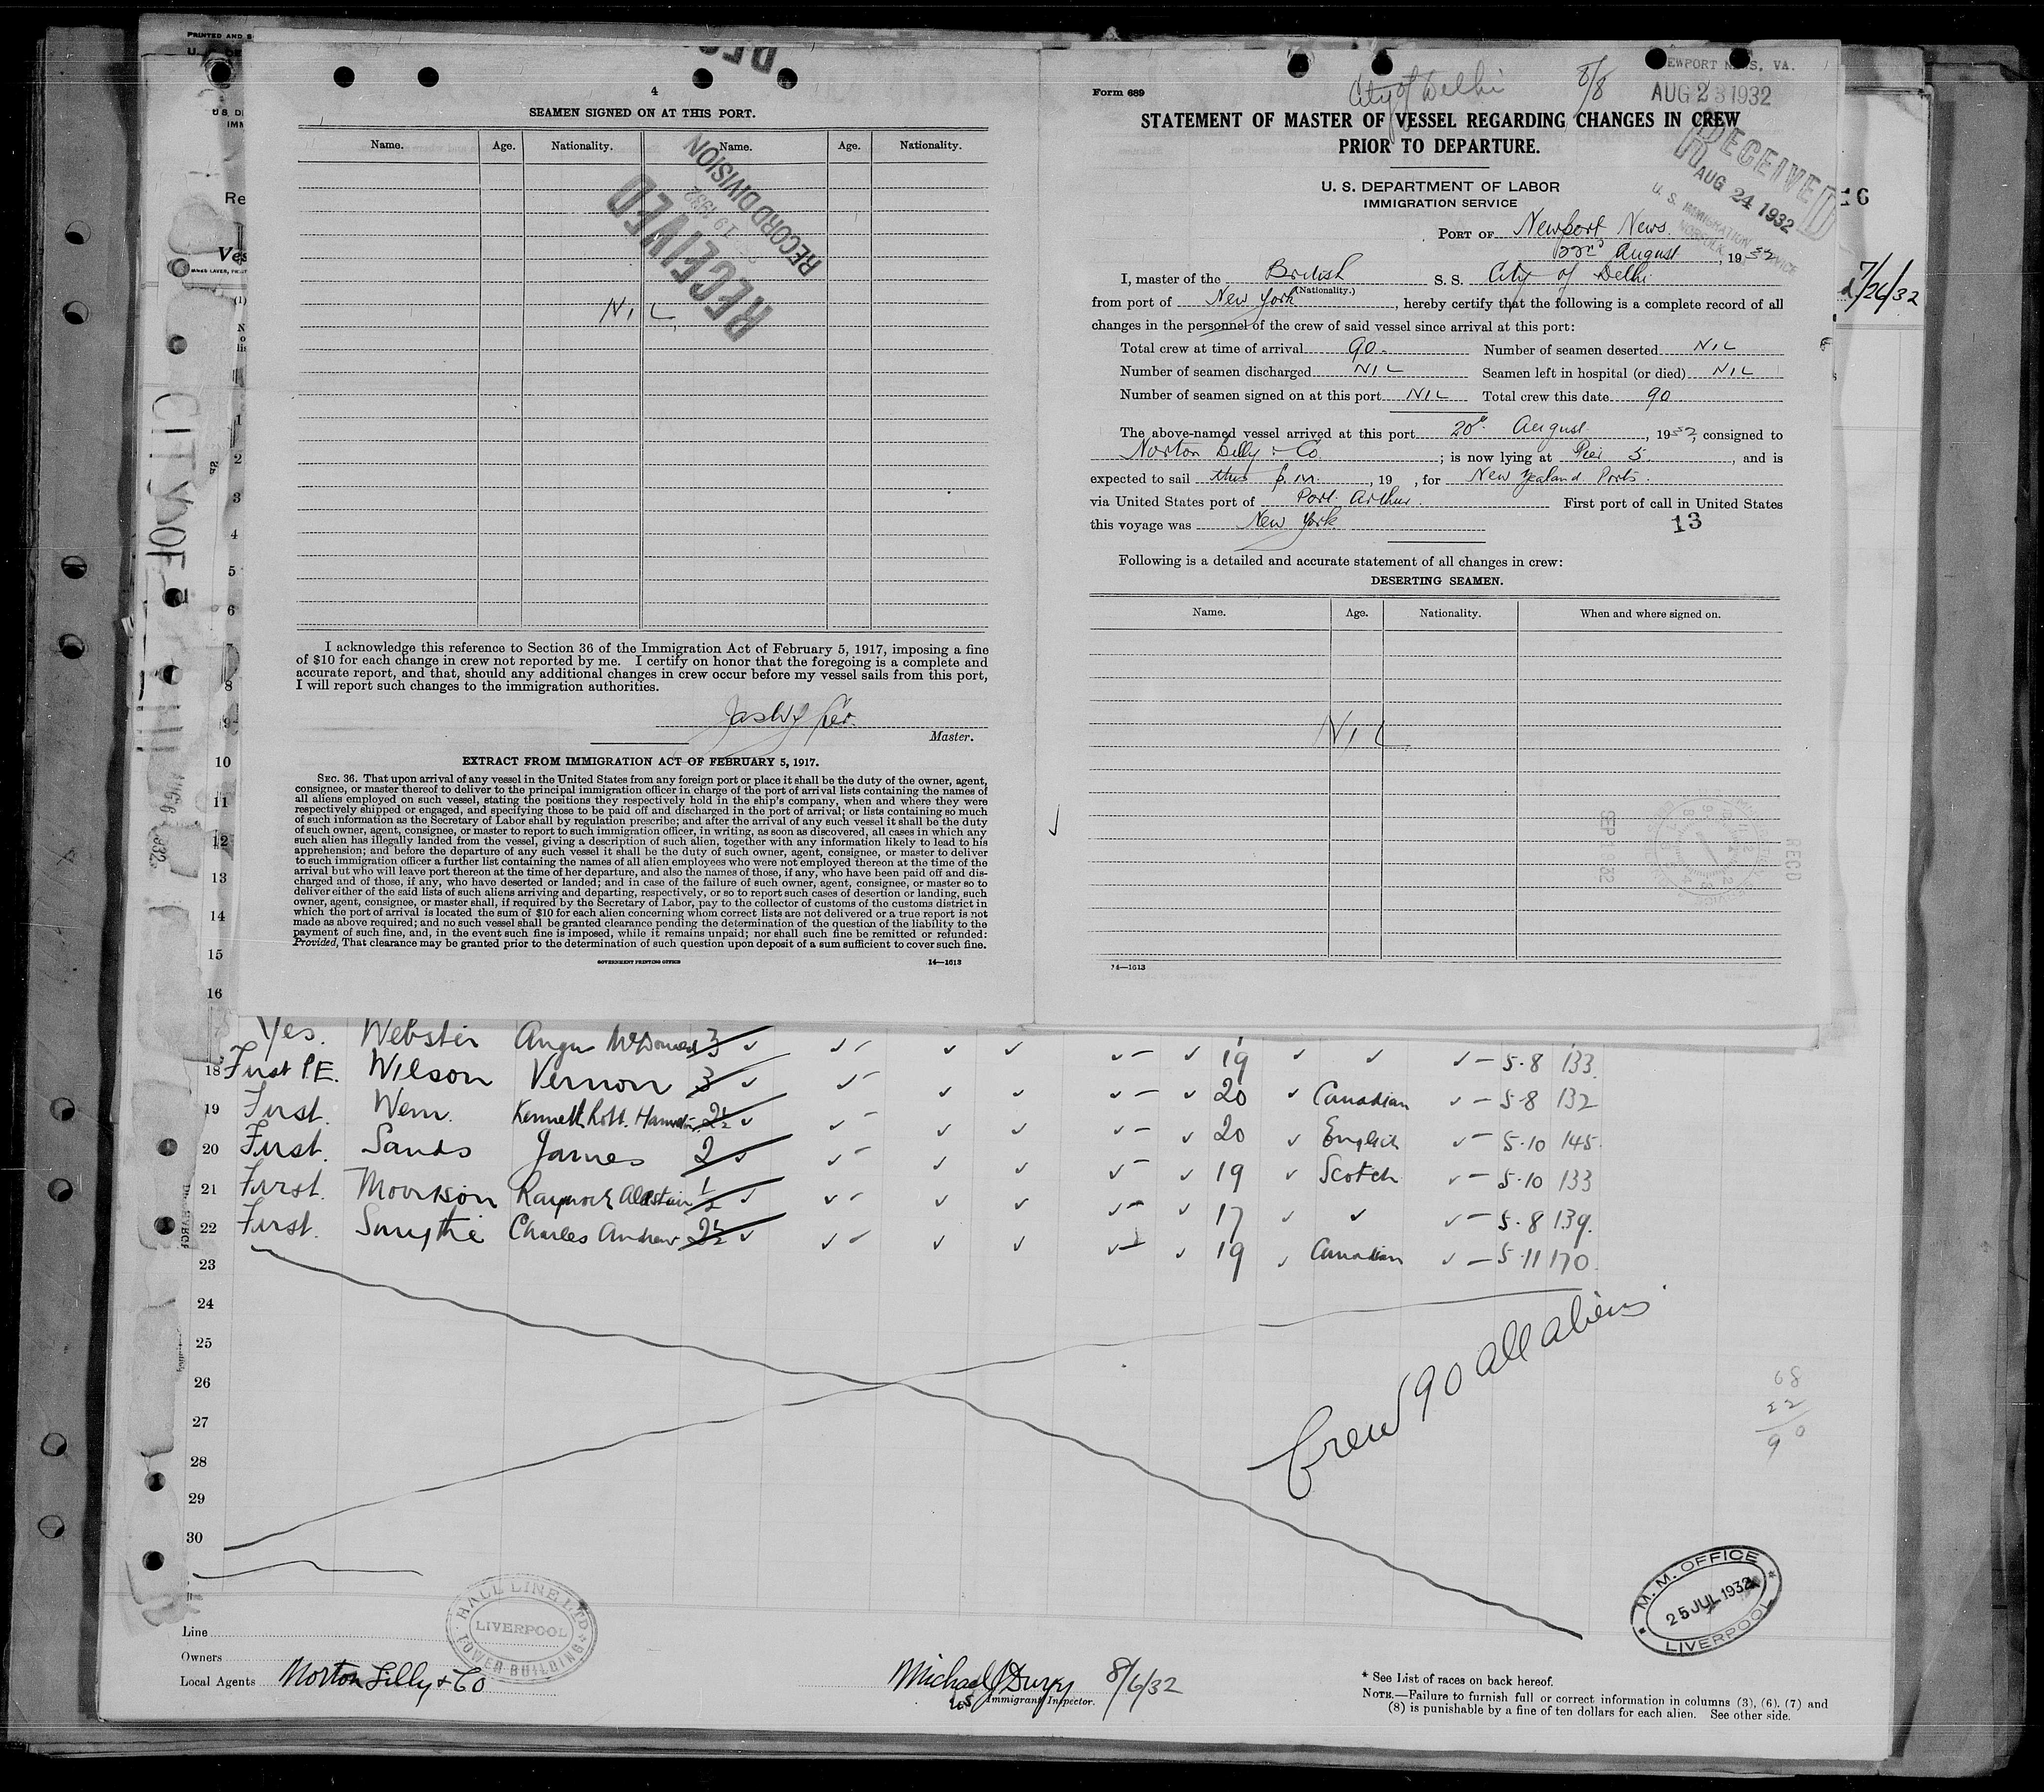 PRINTED AND S
4
SEAMEN SIGNED ON AT THIS PORT.
Name. Age. Nationality. Name. Age. Nationality.
RECEIVED
19 1932
RECORD DIVISION
NIL
I acknowledge this reference to Section 36 of the Immigration Act of February 5, 1917, imposing a fine
of $10 for each change in crew not reported by me. I certify on honor that the foregoing is a complete and
accurate report, and that, should any additional changes in crew occur before my vessel sails from this port,
I will report such changes to the immigration authorities.
Master.
EXTRACT FROM IMMIGRATION ACT OF FEBRUARY 5, 1917.
SEC. 36. That upon arrival of any vessel in the United States from any foreign port or place it shall be the duty of the owner, agent,
consignee, or master thereof to deliver to the principal immigration officer in charge of the port of arrival lists containing the names of
all aliens employed on such vessel, stating the positions they respectively hold in the ship's company, when and where they were
respectively shipped or engaged, and specifying those to be paid off and discharged in the port of arrival; or lists containing so much
of such information as the Secretary of Labor shall by regulation prescribe; and after the arrival of any such vessel it shall be the duty
of such owner, agent, consignee, or master to report to such immigration officer, in writing, as soon as discovered, all cases in which any
such alien has illegally landed from the vessel, giving a description of such alien, together with any information likely to lead to his
apprehension; and before the departure of any such vessel it shall be the duty of such owner, agent, consignee, or master to deliver
to such immigration officer a further list containing the names of all alien employees who were not employed thereon at the time of the
arrival but who will leave port thereon at the time of her departure, and also the names of those, if any, who have been paid off and dis-
charged and of those, if any, who have deserted or landed; and in case of the failure of such owner, agent, consignee, or master so to
deliver either of the said lists of such aliens arriving and departing, respectively, or so to report such cases of desertion or landing, such
owner, agent, consignee, or master shall, if required by the Secretary of Labor, pay to the collector of customs of the customs district in
which the port of arrival is located the sum of $10 for each alien concerning whom correct lists are not delivered or a true report is not
made as above required; and no such vessel shall be granted clearance pending the determination of the question of the liability to the
payment of such fine, and, in the event such fine is imposed, while it remains unpaid; nor shall such fine be remitted or refunded:
Provided, That clearance may be granted prior to the determination of such question upon deposit of a sum sufficient to cover such fine.
GOVERNMENT PRINTING OFFICE 14—1613
Form 689
City of Delhi 8/8
NEWPORT NEWS, VA.
AUG 23 1932
STATEMENT OF MASTER OF VESSEL REGARDING CHANGES IN CREW
PRIOR TO DEPARTURE.
RECEIVED
AUG 24 1932
U. S. IMMIGRATION SERVICE
NORFOLK
U. S. DEPARTMENT OF LABOR
IMMIGRATION SERVICE
PORT OF Newport News.
22nd August, 1932
I, master of the British S. S. City of Delhi
(Nationality.)
from port of New York, hereby certify that the following is a complete record of all
changes in the personnel of the crew of said vessel since arrival at this port:
Total crew at time of arrival 90. Number of seamen deserted NIL
Number of seamen discharged NIL Seamen left in hospital (or died) NIL
Number of seamen signed on at this port NIL Total crew this date 90
The above-named vessel arrived at this port 20th August, 1932, consigned to
Norton Lilly & Co; is now lying at Pier 5, and is
expected to sail this p.m., 19 , for New Zealand Ports.
via United States port of Port Arthur. First port of call in United States
this voyage was New York
13
Following is a detailed and accurate statement of all changes in crew:
DESERTING SEAMEN.
Name. Age. Nationality. When and where signed on.
NIL
SEP 1 1932
RECD
14—1613
16
7/26/32
CITY OF DELHI
1
2
3
4
5
6
7
8
9
10
11
12
13
14
15
16
Yes. Webster Angus McDonald 3 19 5-8 133
18 First P.E. Wilson Vernon 3 20 Canadian 5-8 132
19 First. Wem. Kenneth Robt. Hamilton 2½ 20 English 5-10 145
20 First. Sands James 2 19 Scotch 5-10 133
21 First. Morrison Alastair ½ 17 5-8 139
22 First. Smythe Charles Andrew 2½ 19 Canadian 5-11 170
23
24
25
26
27
28
29
30
Crew 90 all aliens
68
22
90
HALL LINE LTD
LIVERPOOL
TOWER BUILDING
M. M. OFFICE
25 JUL 1932
LIVERPOOL
Line
Owners
Local Agents Norton Lilly & Co
Michael J Durry 8/6/32
U.S. Immigrant Inspector.
* See List of races on back hereof.
NOTE.—Failure to furnish full or correct information in columns (3), (6), (7) and
(8) is punishable by a fine of ten dollars for each alien. See other side.